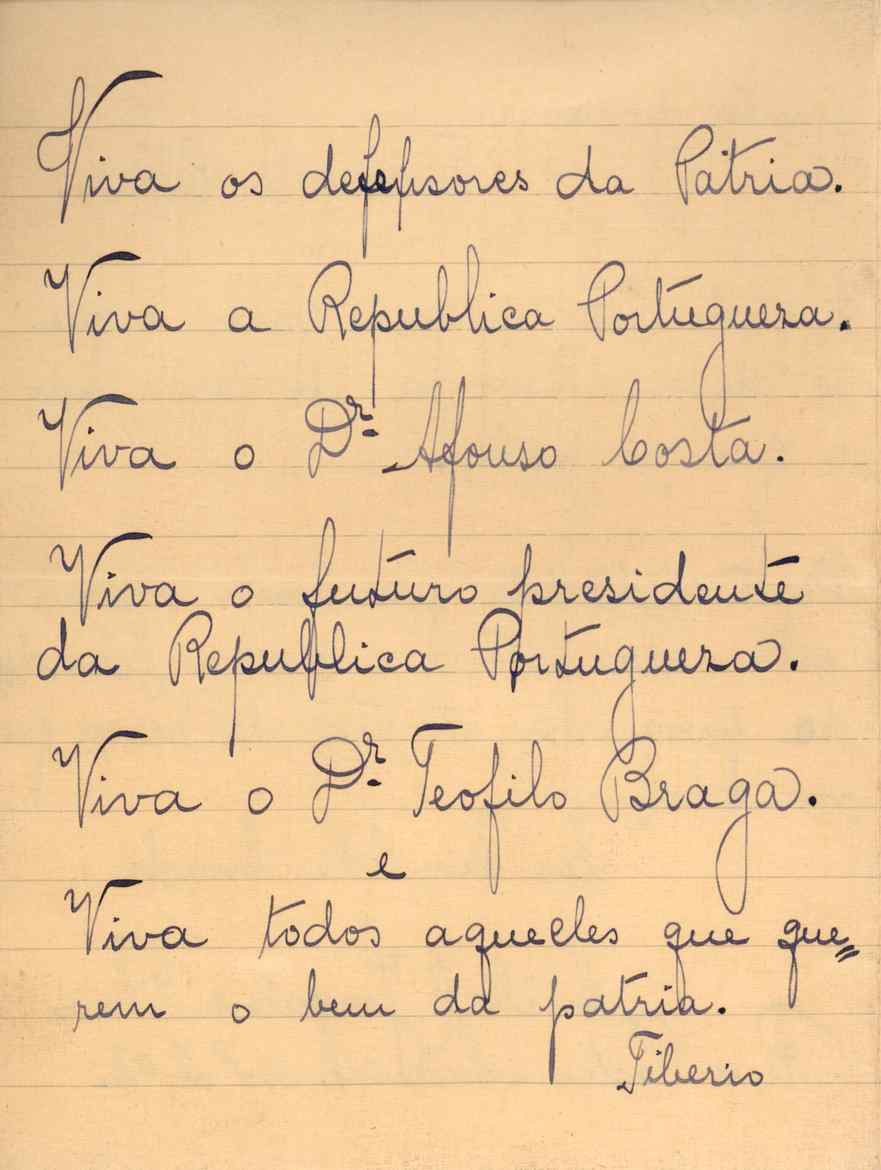 Viva os defensores da Patria.
Viva a Republica Portugueza.
Viva o Dr. Afonso Costa.
Viva o futuro presidente
da Republica Portugueza.
Viva o Dr. Teofilo Braga.
e
Viva todos aqueles que que=
rem o bem da patria.
Tiberio